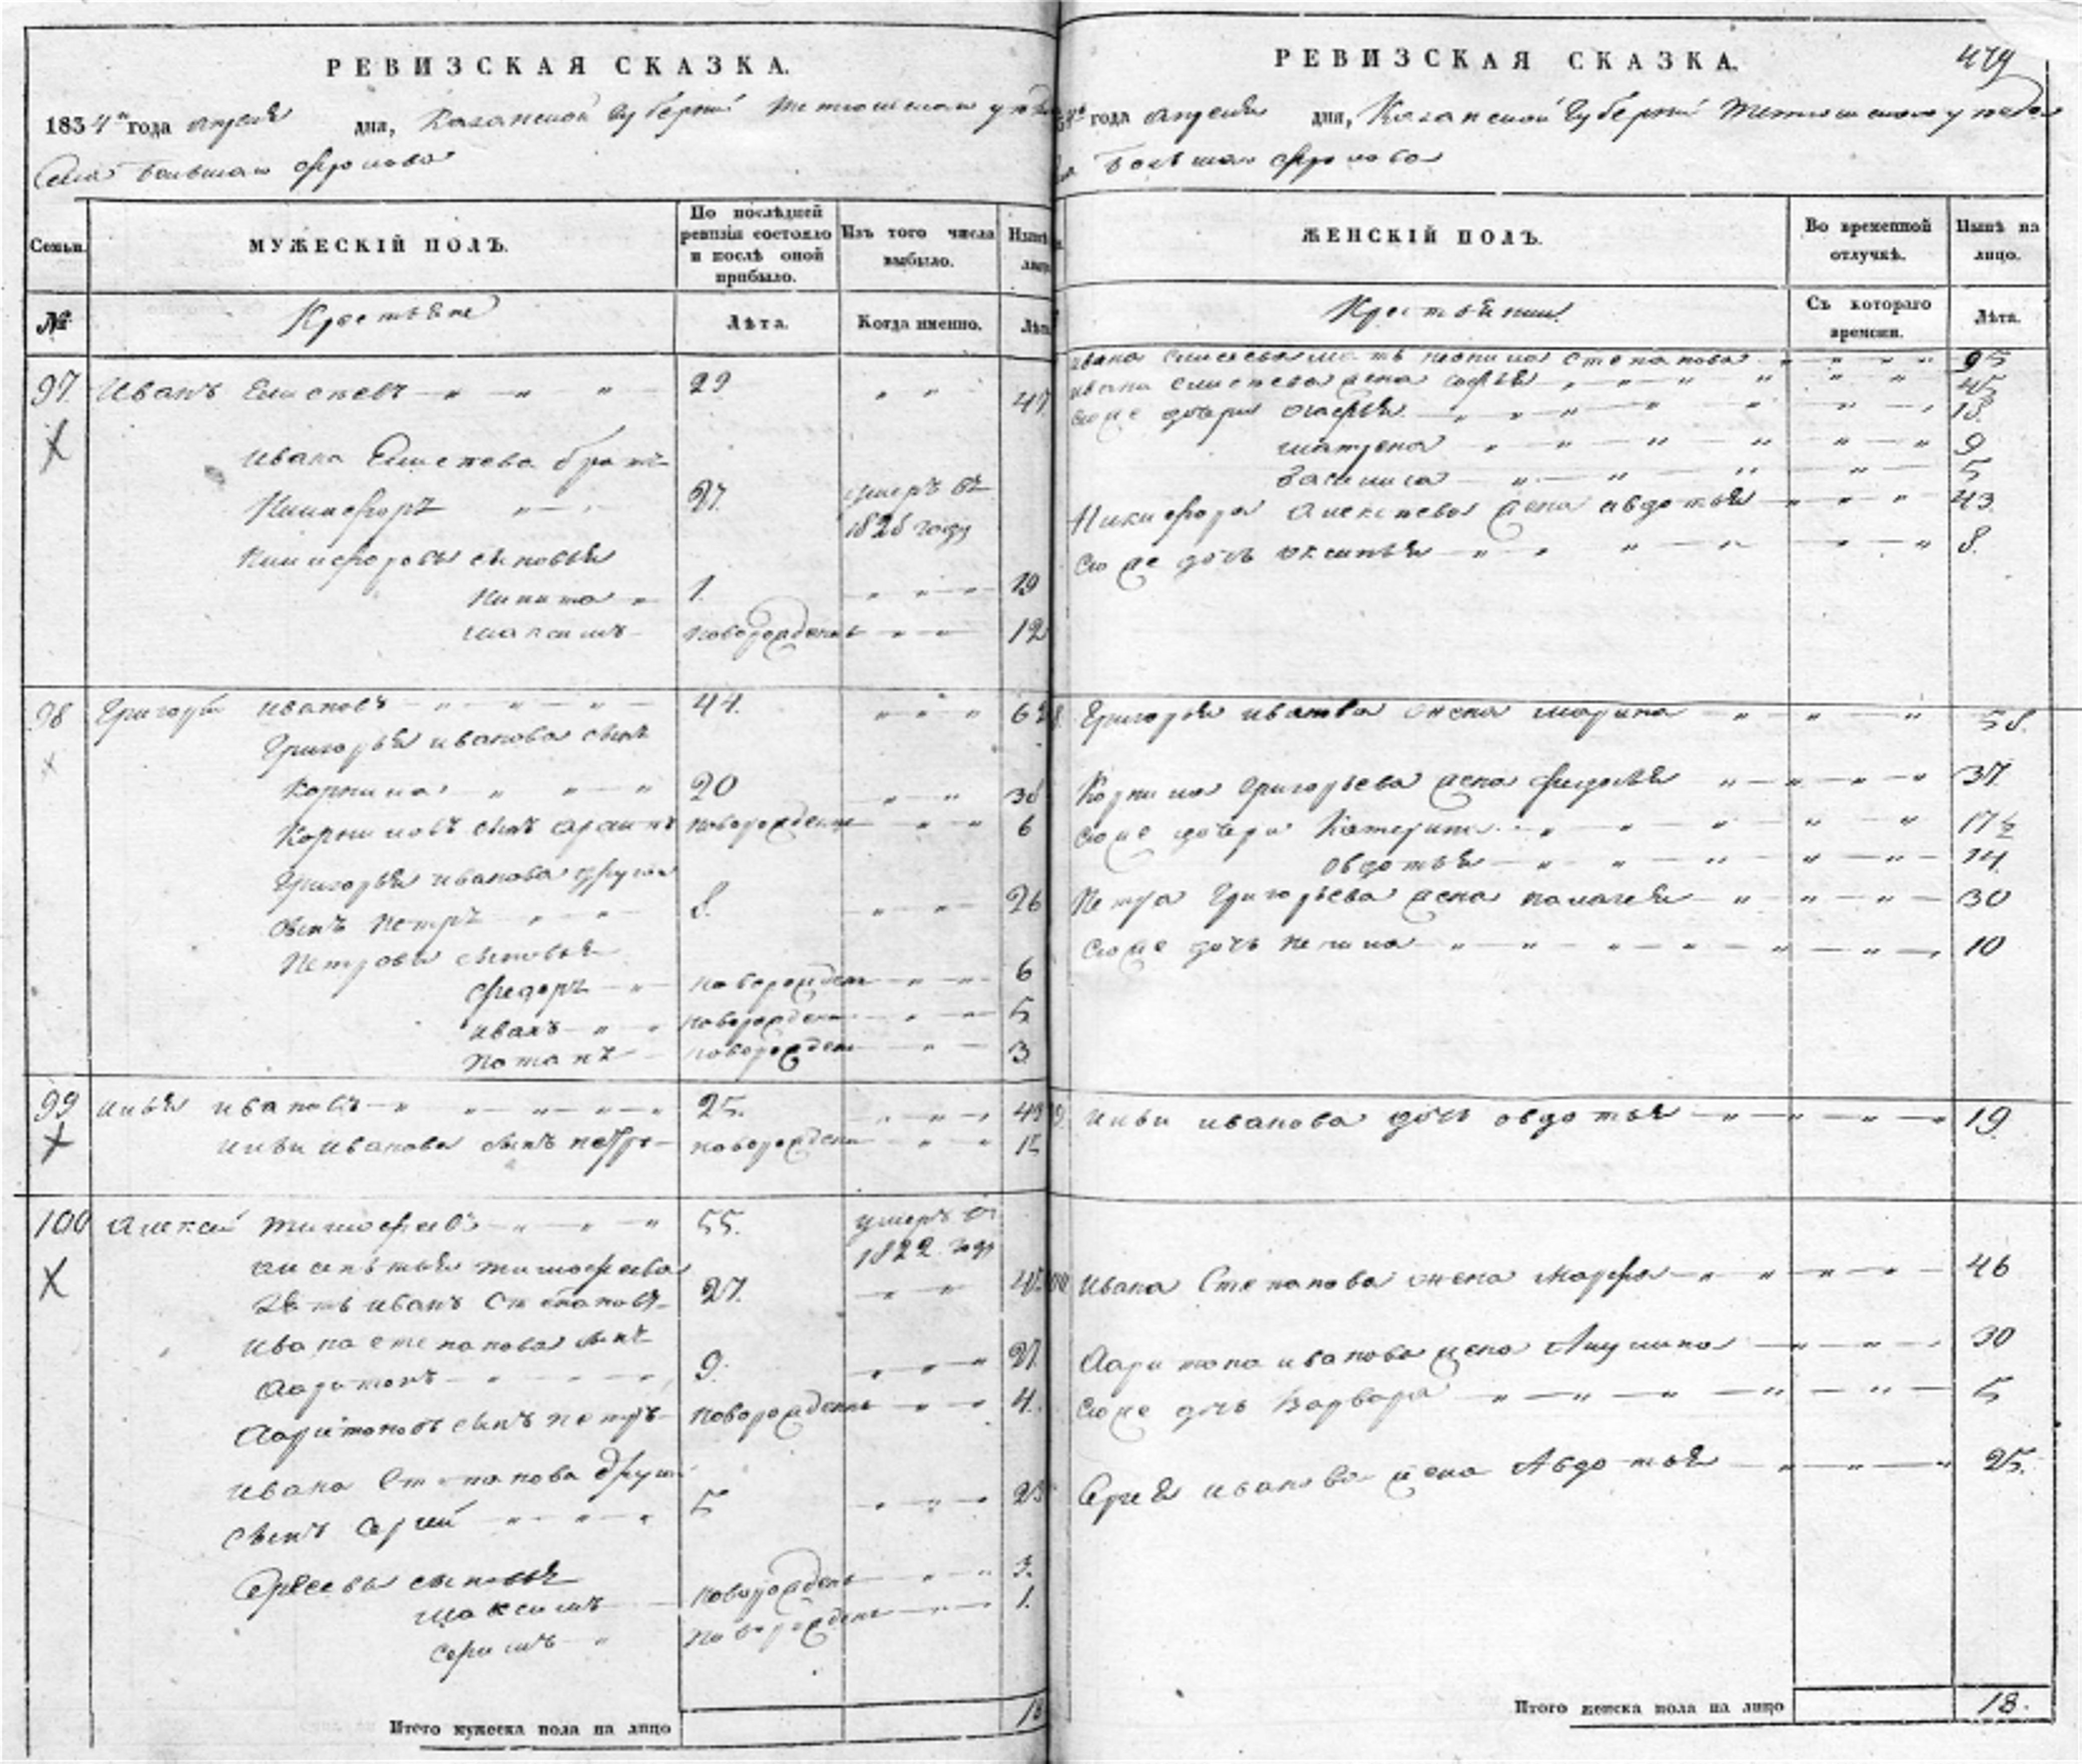 РЕВИЗСКАЯ СКАЗКА.
1834го года апреля дня, Казанской Губернии Тетюшскаго уезда
Села Большаго Фролова
Семьи. МУЖЕСКІЙ ПОЛЪ. По послѣдней ревизіи состояло и послѣ оной прибыло. Изъ того числа выбыло. Нынѣ лицо
№ Крестьяне Лѣта. Когда именно. Лѣта
97. Иванъ Елисеевъ 29 47.
Ивана братъ
Никифоръ 27. умеръ въ
1826 году
Никифоровы сыновья
Никита 1. 19
Максимъ новорожденъ 12
98 Григорій Ивановъ 44. 62
Григорья Иванова сынъ
Корнила 20 38
Корниловъ сынъ новорожденъ 6
Григорья Иванова другой
сынъ Петръ 8. 26
Петровы сыновья
Федоръ новорожден 6
Иванъ новорожден 5
Потапъ новорожден 3
99 Илья Ивановъ 25. 43
Ильи Иванова сынъ Петръ новорожден 15
100 Алексей Тимофеевъ 55. умеръ въ
1822 году
Тимофеева
зять Иванъ Степановъ 27. 45
Ивана Степанова сынъ
Харитонъ 9. 27.
Харитоновъ сынъ Петръ новорожденъ 4.
Ивана Степанова другой
сынъ Сергий 5 23
Сергеевы сыновья
Максимъ новорожденъ 3.
новорожденъ 1.
Итого мужеска пола на лицо 18
РЕВИЗСКАЯ СКАЗКА. 479
года апреля дня, Казанской Губернии Тетюшскаго уезда
Большаго Фролова
ЖЕНСКІЙ ПОЛЪ. Во временной отлучкѣ. Нынѣ на лицо.
Крестьянки Съ котораго времени. Лѣта.
Ивана мать Степанова 95
Ивана Елисеева жена Софья 45
его же дочери 18.
Матрена 9
Василиса 5
Никифора жена Авдотья 43.
его же дочь Оксинья 8.
Григорья Иванова жена Марина 58.
Корнила Григорьева жена Федосья 37.
его же дочери Катерина 17½
Овдотья 14.
Петра Григорьева жена Палагея 30
его же дочь 10
99 Ильи Иванова дочь Овдотья 19.
100 Ивана Степанова жена Марфа 46
Харитона Иванова жена Акулина 30
его же дочь Варвара 5
Сергея Иванова жена Авдотья 25.
Итого женска пола на лицо 18.